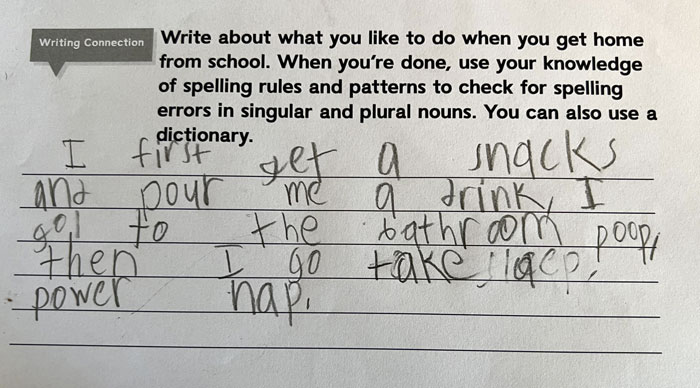 Writing Connection
Write about what you like to do when you get home
from school. When you're done, use your knowledge
of spelling rules and patterns to check for spelling
errors in singular and plural nouns. You can also use a
dictionary.
I first get a snacks
and pour me a drink, I
go, to the bathroom poop,
then I go take
power nap.